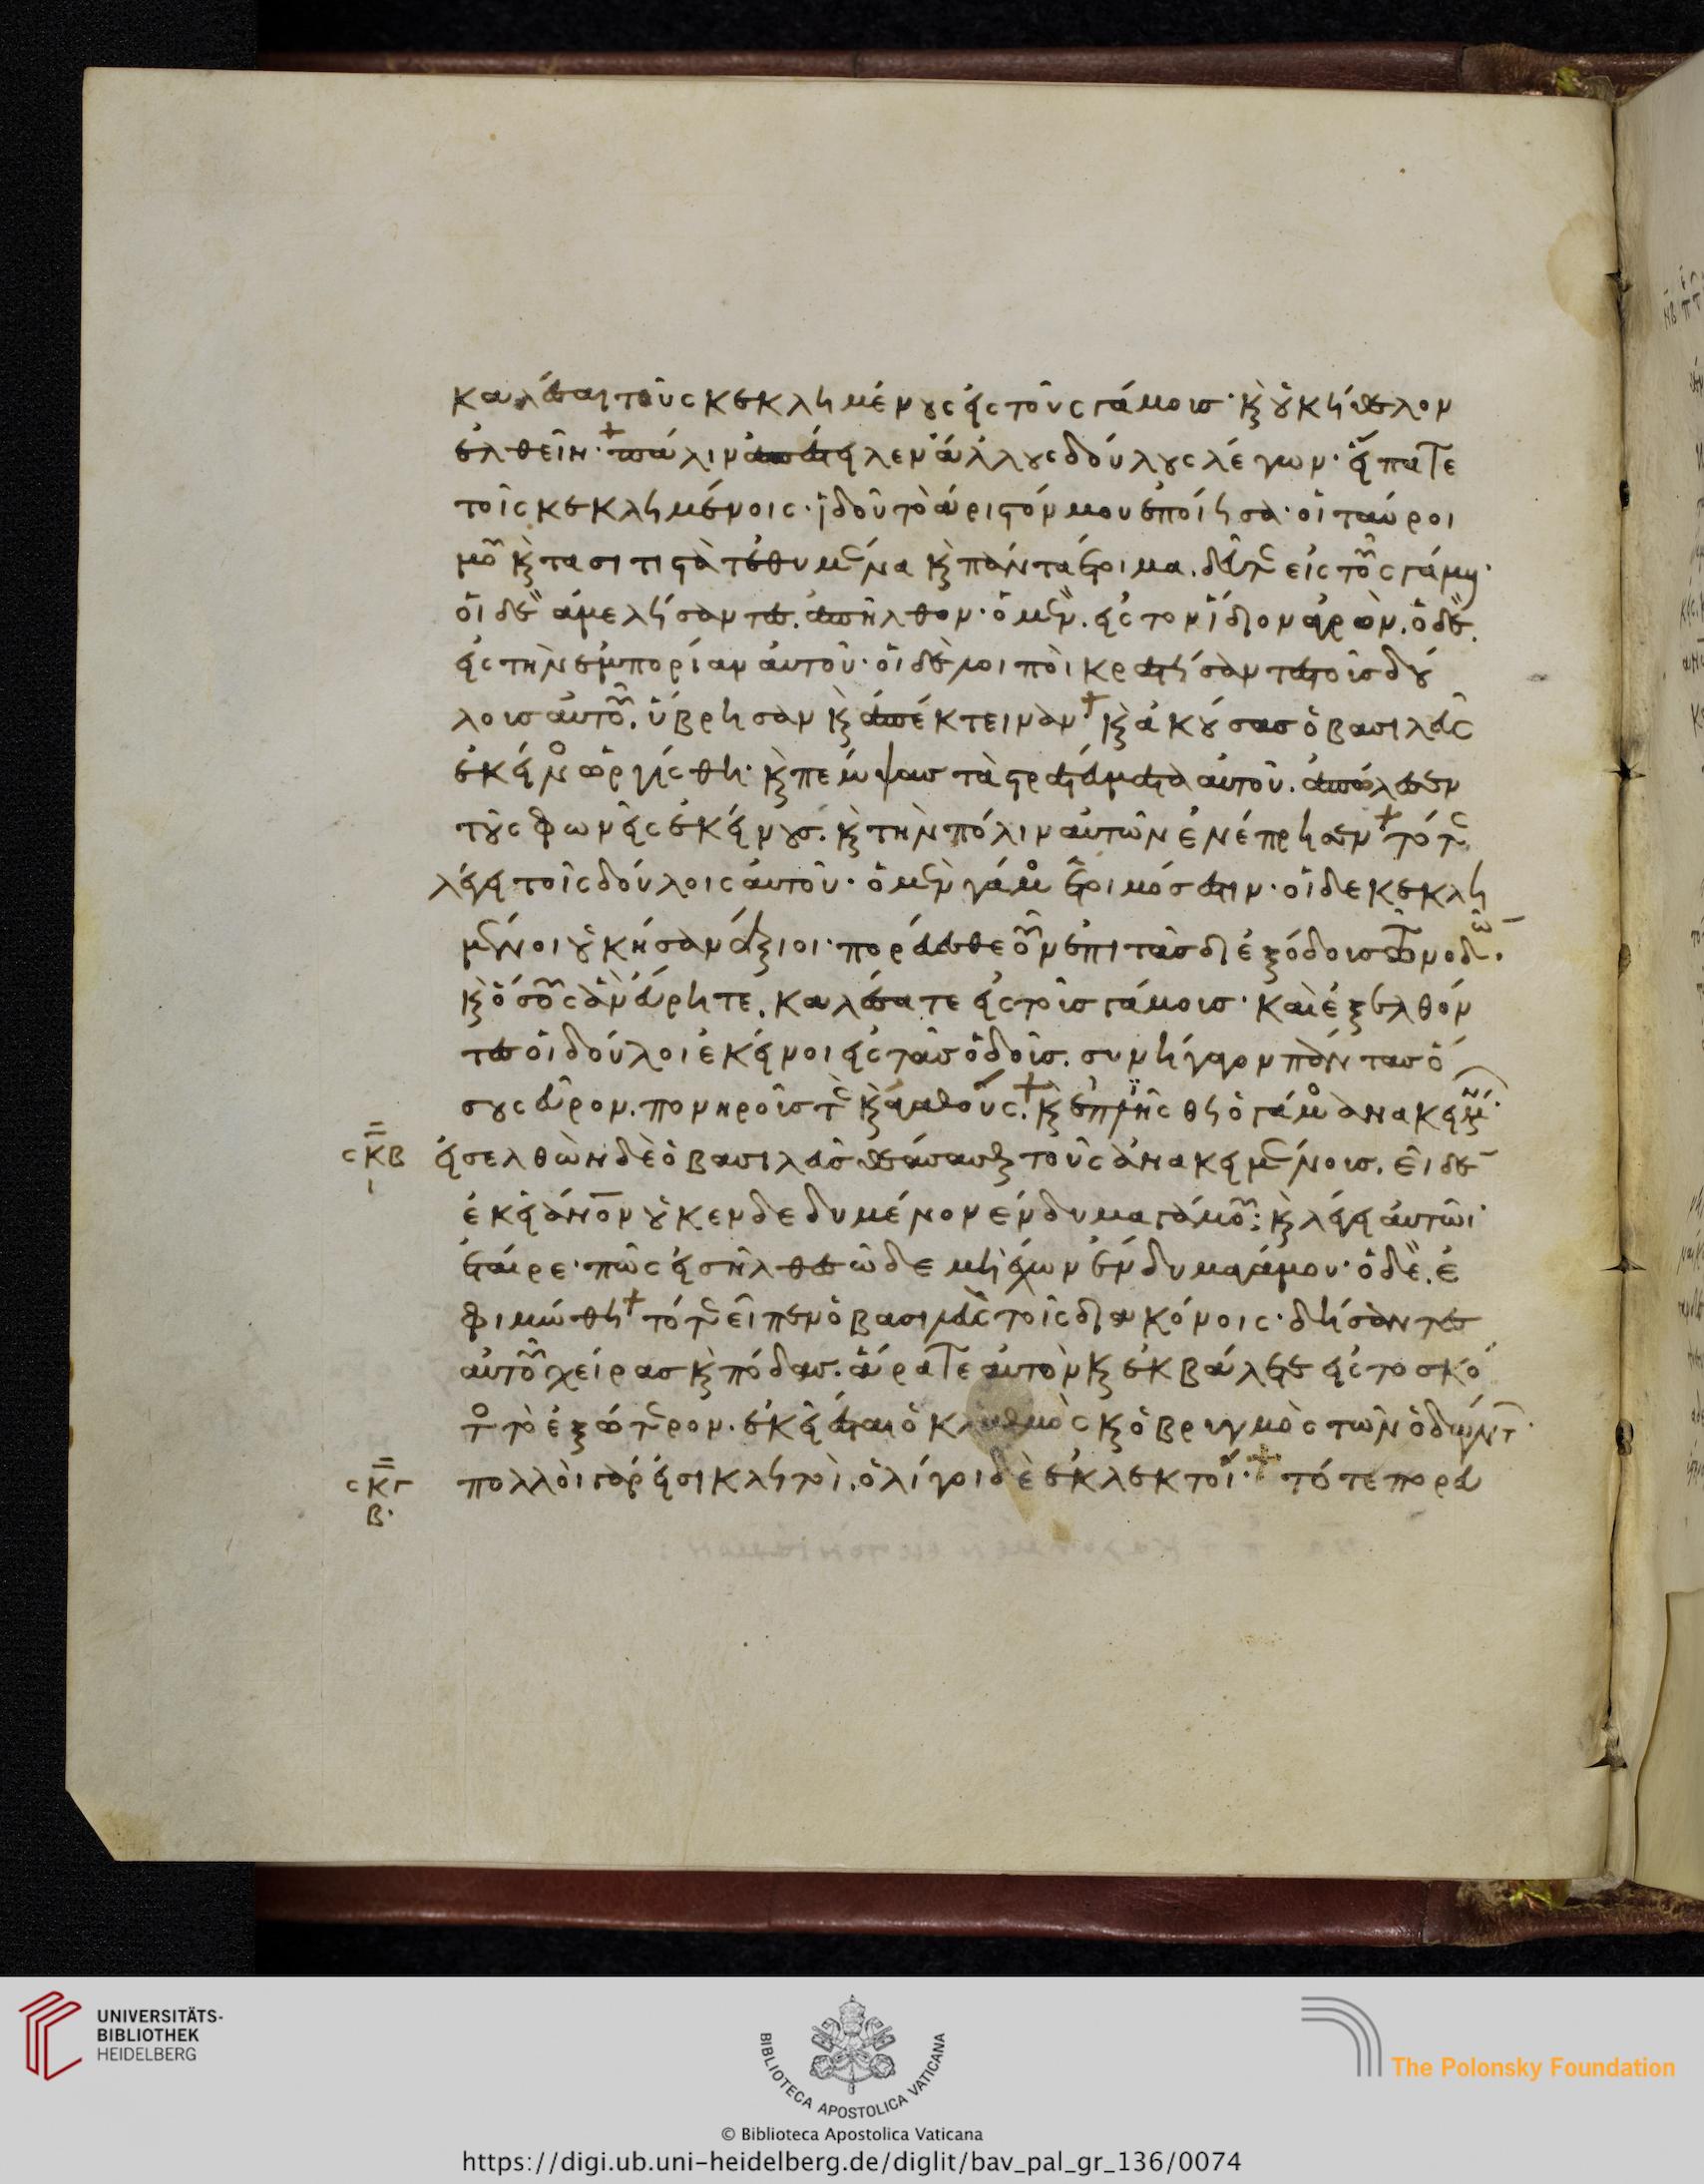 καλέσαι τοὺς κεκλημένους εἰς τοὺς γάμους· κ(αὶ) οὐκ ἤθελον
ἐλθεῖν· πάλιν ἀπέστειλεν ἄλλους δούλους λέγων· εἴπατε
τοῖς κεκλημένοις· ἰδοὺ τὸ ἄριστόν μου ἐποίησα· οἱ ταῦροι
μου κ(αὶ) τὰ σιτιστὰ τεθυμένα κ(αὶ) πάντα ἕτοιμα. δεῦτε εἰς τοὺς γάμου·
οἱ δὲ ἀμελήσαντες. ἀπῆλθον· ὁ μὲν. εἰς τὸν ἴδιον ἀγρὸν. ὁ δὲ.
εἰς τὴν ἐμπορίαν αὐτοῦ· οἱ δὲ λοιποὶ κρατήσαντες τοὺς δού
λους αὐτοῦ. ὕβρησαν κ(αὶ) ἀπέκτειναν· κ(αὶ) ἀκούσας ὁ βασιλεὺς
ἐκεῖνος ὠργίσθη· κ(αὶ) πέμψας τὰ στρατεύματα αὐτοῦ. ἀπώλεσεν
τοὺς φωνεῖς ἐκείνους. κ(αὶ) τὴν πόλιν αὐτῶν ἐνέπρησεν· τότε
λέγει τοῖς δούλοις αὐτοῦ· ὁ μὲν γάμος ἕτοιμός ἐστιν· οἱ δὲ κεκλη
μένοι οὐκ ἦσαν ἄξιοι· πορεύεσθε οὖν ἐπὶ τὰς διεξόδους τῶν ὁδῶν.
κ(αὶ) ὅσους ἂν εὕρητε. καλέσατε εἰς τοὺς γάμους· καὶ ἐξελθόν
τες οἱ δοῦλοι ἐκεῖνοι εἰς τὰς ὁδοὺς. συνήγαγον πάντας ὅ
σους εὗρον. πονηρούς τε κ(αὶ) ἀγαθούς. κ(αὶ) ἐπλήσθη ὁ γάμος ἀνακειμέν·
σκβ εἰσελθὼν δὲ ὁ βασιλεὺς θεάσασθαι τοὺς ἀνακειμένους. εἶδεν
ι
ἐκεῖ ἄνον οὐκ ἐνδεδυμένον ἔνδυμα γάμου: κ(αὶ) λέγει αὐτῶι·
ἑταῖρε· πῶς εἰσῆλθες ὧδε μὴ ἔχων ἔνδυμα γάμου· ὁ δὲ. ἐ
φιμώθη τότε εἶπεν ὁ βασιλεὺς τοῖς διακόνοις· δήσαντες
αὐτοῦ χεῖρας κ(αὶ) πόδας. ἄρατε αὐτὸν κ(αὶ) ἐκβάλετε εἰς τὸ σκό
τος τὸ ἐξώτερον. ἐκεῖ ἔσται ὁ κλαυθμὸς κ(αὶ) ὁ βρυγμὸς τῶν ὀδόντ·
σκγ πολλοὶ γάρ εἰσι κλητοὶ. ὀλίγοι δὲ ἐκλεκτοί· τότε πορευ
β·
UNIVERSITÄTS-
BIBLIOTHEK
HEIDELBERG
BIBLIOTECA APOSTOLICA VATICANA
The Polonsky Foundation
© Biblioteca Apostolica Vaticana
https://digi.ub.uni-heidelberg.de/diglit/bav_pal_gr_136/0074